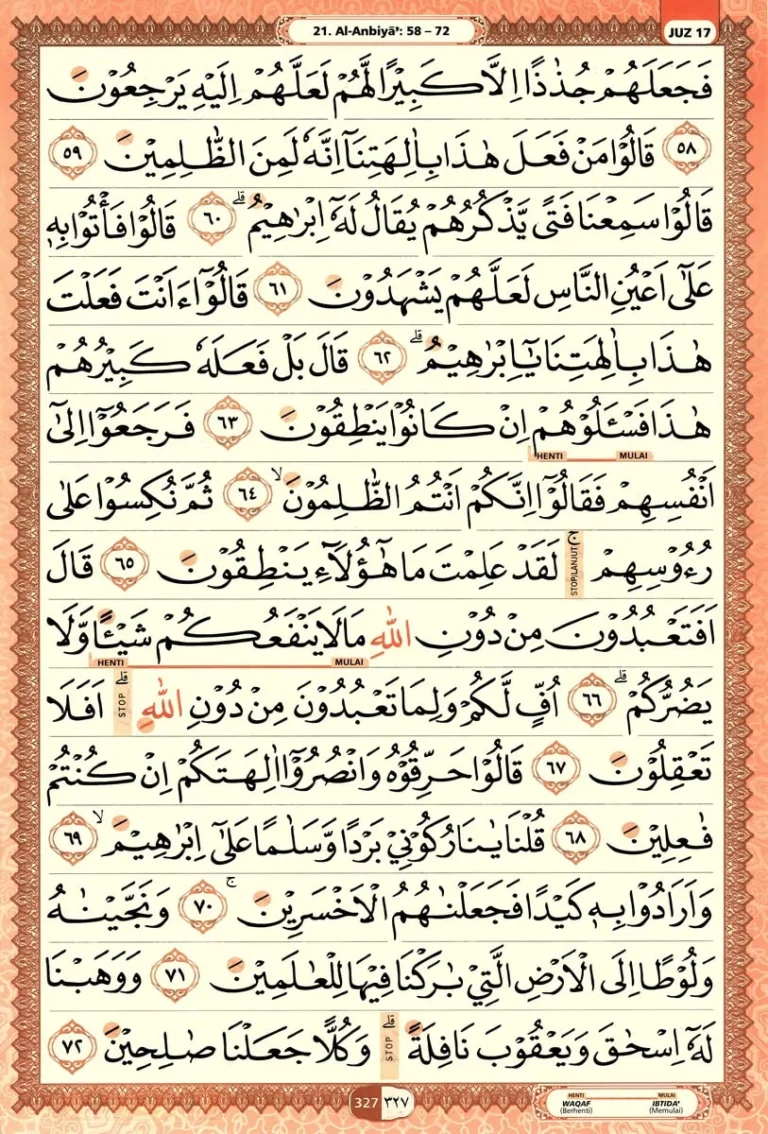 21. Al-Anbiyā': 58 – 72
JUZ 17
فَجَعَلَهُمْ جُذٰذًا اِلَّا كَبِيْرًا لَّهُمْ لَعَلَّهُمْ اِلَيْهِ يَرْجِعُوْنَ
٥٨ قَالُوْا مَنْ فَعَلَ هٰذَا بِاٰلِهَتِنَآ اِنَّهٗ لَمِنَ الظّٰلِمِيْنَ ٥٩
قَالُوْا سَمِعْنَا فَتًى يَّذْكُرُهُمْ يُقَالُ لَهٗٓ اِبْرٰهِيْمُ ۗ ٦٠ قَالُوْا فَأْتُوْا بِهٖ
عَلٰٓى اَعْيُنِ النَّاسِ لَعَلَّهُمْ يَشْهَدُوْنَ ٦١ قَالُوْٓا ءَاَنْتَ فَعَلْتَ
هٰذَا بِاٰلِهَتِنَا يٰٓاِبْرٰهِيْمُ ۗ ٦٢ قَالَ بَلْ فَعَلَهٗ كَبِيْرُهُمْ
هٰذَا فَسْـَٔلُوْهُمْ اِنْ كَانُوْا يَنْطِقُوْنَ ٦٣ فَرَجَعُوْٓا اِلٰٓى
HENTI MULAI
اَنْفُسِهِمْ فَقَالُوْٓا اِنَّكُمْ اَنْتُمُ الظّٰلِمُوْنَ ۙ ٦٤ ثُمَّ نُكِسُوْا عَلٰى
رُءُوْسِهِمْ ۚ لَقَدْ عَلِمْتَ مَا هٰٓؤُلَاۤءِ يَنْطِقُوْنَ ٦٥ قَالَ
STOP/LANJUT
اَفَتَعْبُدُوْنَ مِنْ دُوْنِ اللّٰهِ مَا لَا يَنْفَعُكُمْ شَيْـًٔا وَّلَا
HENTI MULAI
يَضُرُّكُمْ ۗ ٦٦ اُفٍّ لَّكُمْ وَلِمَا تَعْبُدُوْنَ مِنْ دُوْنِ اللّٰهِ ۗ اَفَلَا
STOP
تَعْقِلُوْنَ ٦٧ قَالُوْا حَرِّقُوْهُ وَانْصُرُوْٓا اٰلِهَتَكُمْ اِنْ كُنْتُمْ
فٰعِلِيْنَ ٦٨ قُلْنَا يٰنَارُ كُوْنِيْ بَرْدًا وَّسَلٰمًا عَلٰٓى اِبْرٰهِيْمَ ۙ ٦٩
وَاَرَادُوْا بِهٖ كَيْدًا فَجَعَلْنٰهُمُ الْاَخْسَرِيْنَ ۚ ٧٠ وَنَجَّيْنٰهُ
وَلُوْطًا اِلَى الْاَرْضِ الَّتِيْ بٰرَكْنَا فِيْهَا لِلْعٰلَمِيْنَ ٧١ وَوَهَبْنَا
لَهٗٓ اِسْحٰقَ وَيَعْقُوْبَ نَافِلَةً ۗ وَكُلًّا جَعَلْنَا صٰلِحِيْنَ ٧٢
STOP
327 ٣٢٧
HENTI MULAI
WAQAF IBTIDA'
(Berhenti) (Memulai)